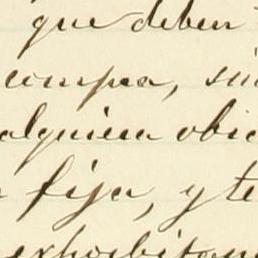 que deben
compra, sin
alguien obic
fija, y te
exhorbitan